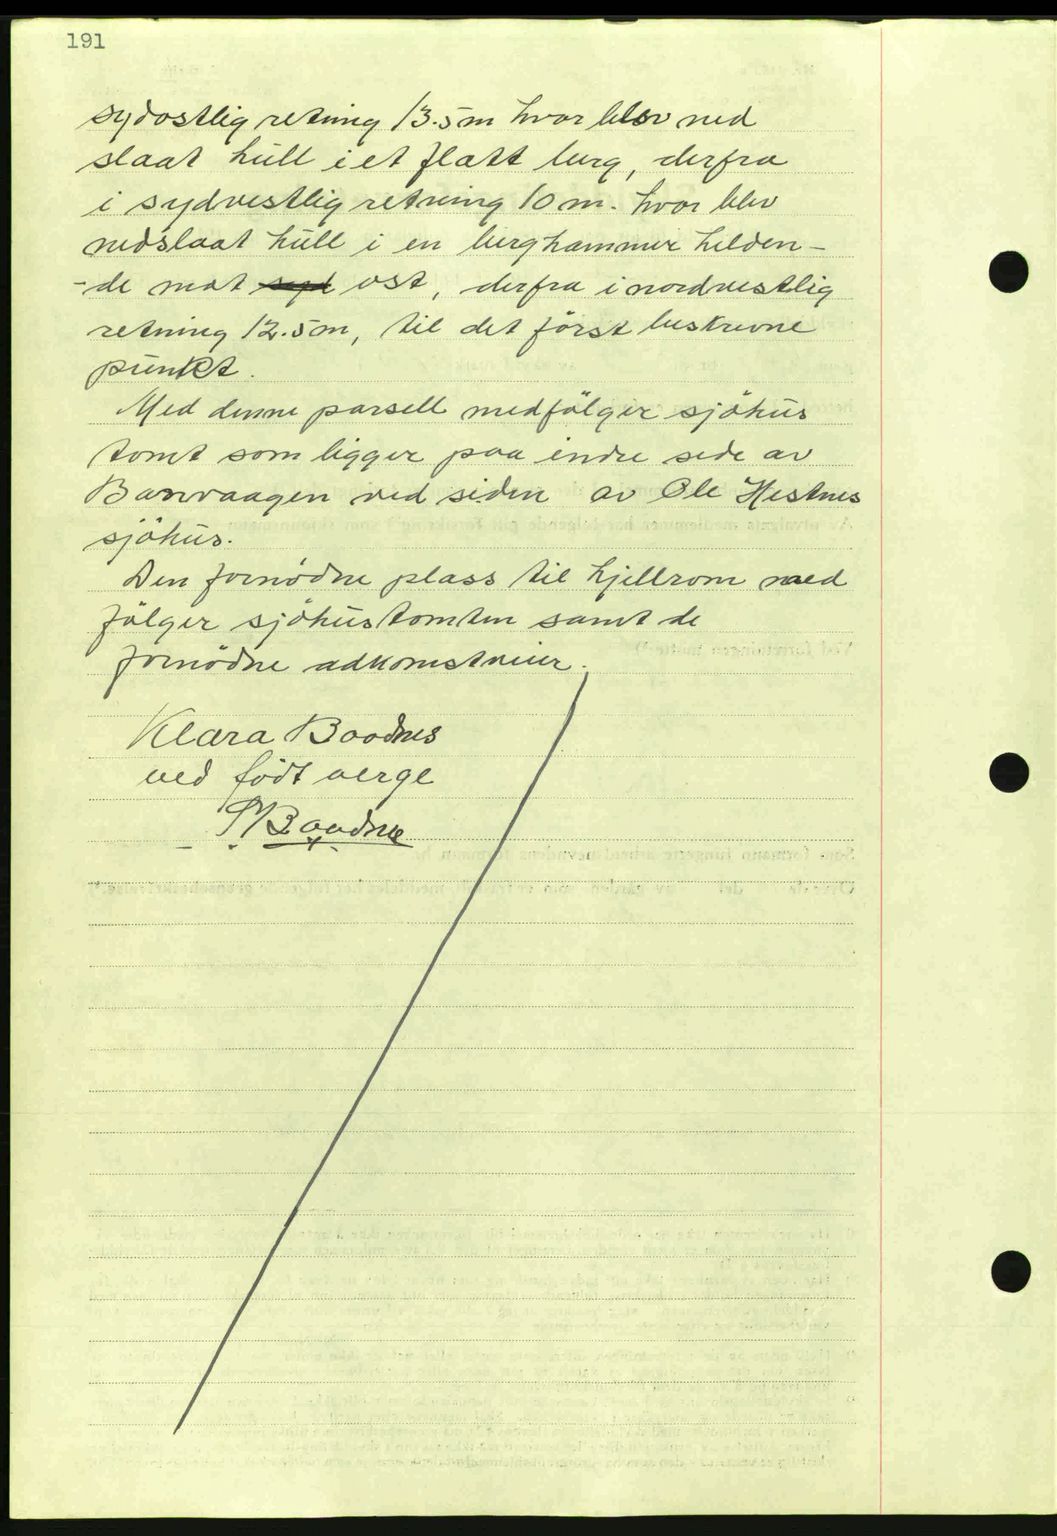 191
sydostlig retning 13.5m hvor blev ned
slaat hull i et flatt berg, derfra
i sydvestlig retning 10 m. hvor blev
nedslaat hull i en berghammer helden-
-de mot syd ost, derfra i nordvestlig
retning 12.5m, til det först beskrevne
punkt.
Med denne parsell medfölger sjöhus
tomt som ligger paa indre side av
ved siden av Ole Hestnes
sjöhus.
Den fornödne plass til hjellrom med
fölger sjöhustomten samt de
fornödne adkomstveier.
Klara Boodnes
ved födt verge